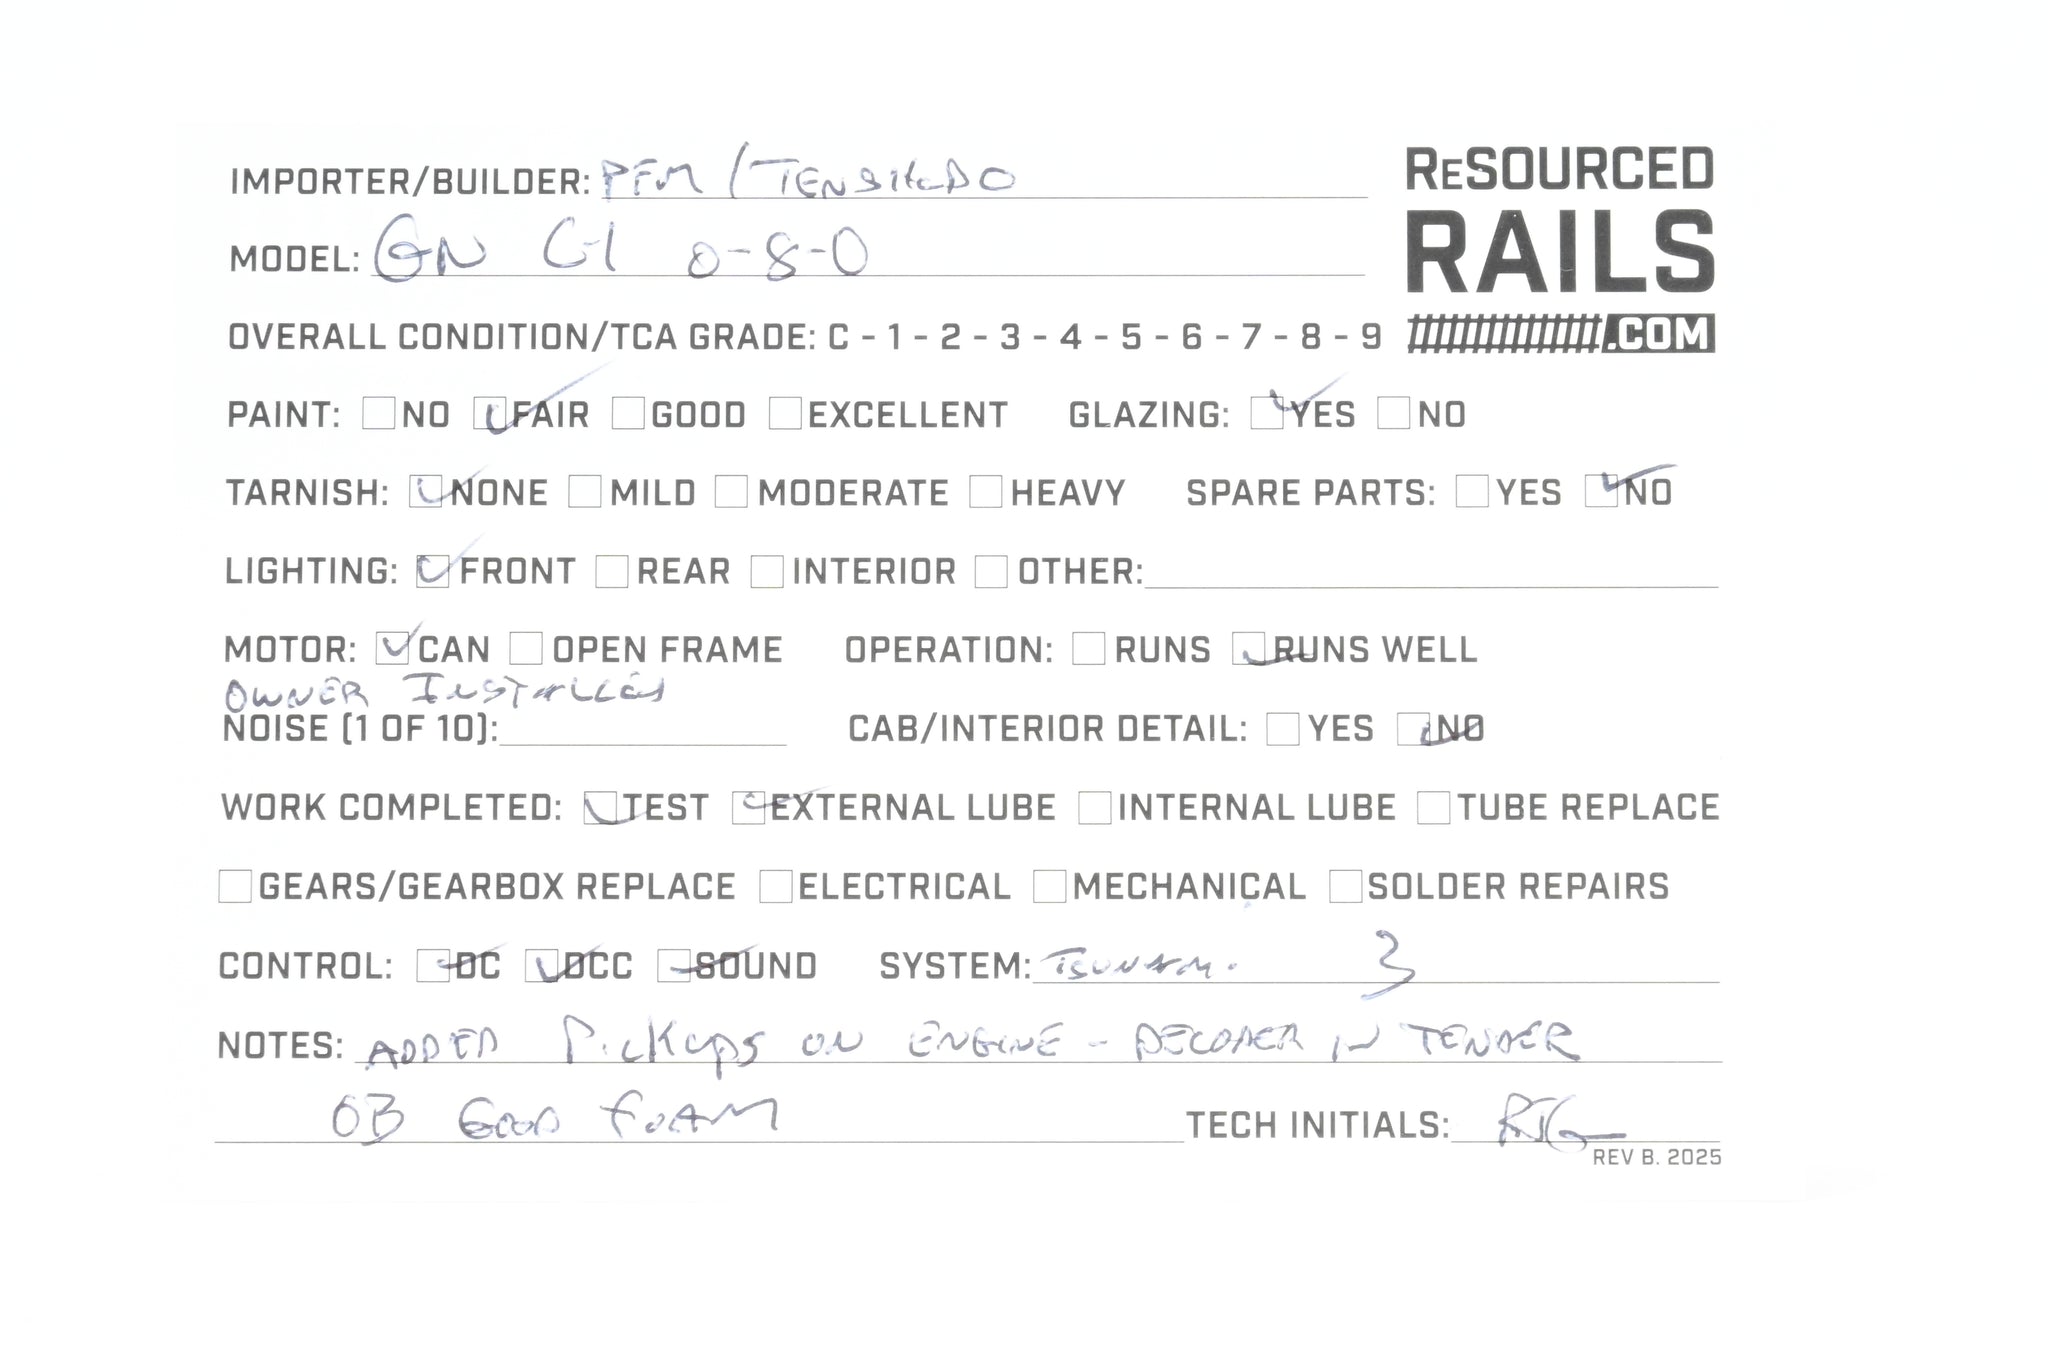 IMPORTER/BUILDER: PFM / TENSHODO
RESOURCED
RAILS
.COM
MODEL: GN C-1 0-8-0
OVERALL CONDITION/TCA GRADE: C - 1 - 2 - 3 - 4 - 5 - 6 - 7 - 8 - 9
PAINT: NO FAIR GOOD EXCELLENT GLAZING: YES NO
TARNISH: NONE MILD MODERATE HEAVY SPARE PARTS: YES NO
LIGHTING: FRONT REAR INTERIOR OTHER:
MOTOR: CAN OPEN FRAME OPERATION: RUNS RUNS WELL
OWNER INSTALLED
NOISE (1 OF 10): CAB/INTERIOR DETAIL: YES NO
WORK COMPLETED: TEST EXTERNAL LUBE INTERNAL LUBE TUBE REPLACE
GEARS/GEARBOX REPLACE ELECTRICAL MECHANICAL SOLDER REPAIRS
CONTROL: DC DCC SOUND SYSTEM: TSUNAMI 3
NOTES: ADDED PICKUPS ON ENGINE - DECODER IN TENDER
OB GOOD FOAM TECH INITIALS: RJG
REV B. 2025